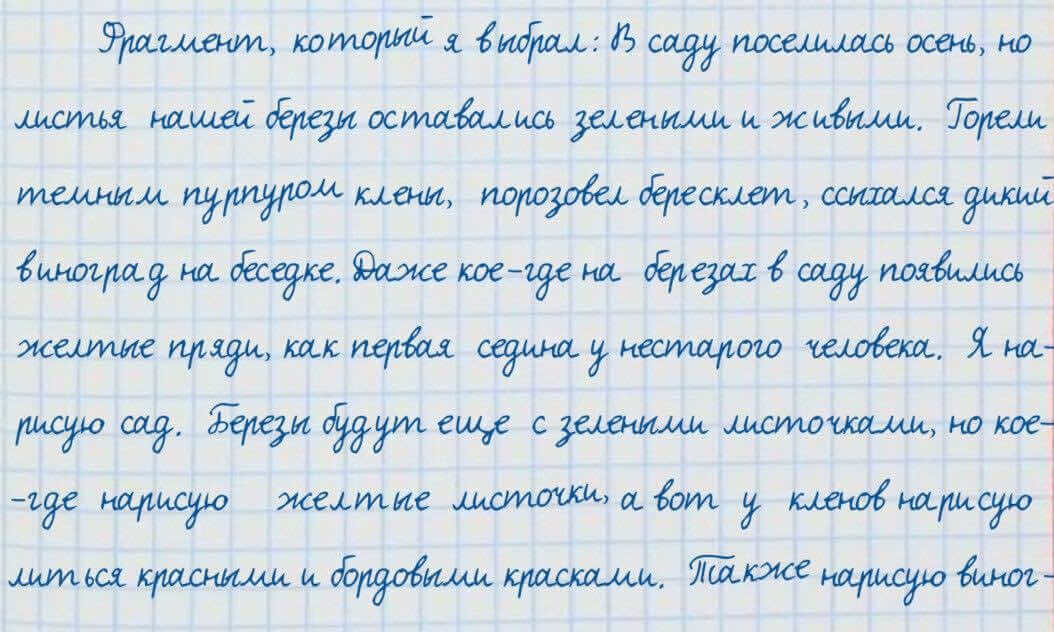 Фрагмент, который я выбрал: В саду поселилась осень, но
листья нашей березы оставались зелеными и живыми. Горели
темным пурпуром клены, порозовел бересклет, ссыхался дикий
виноград на беседке. Даже кое-где на березах в саду появились
желтые пряди, как первая седина у нестарого человека. Я на-
рисую сад. Березы будут еще с зелеными листочками, но кое-
-где нарисую желтые листочки, а вот у кленов нарисую
литься красными и бордовыми красками. Также нарисую виног-